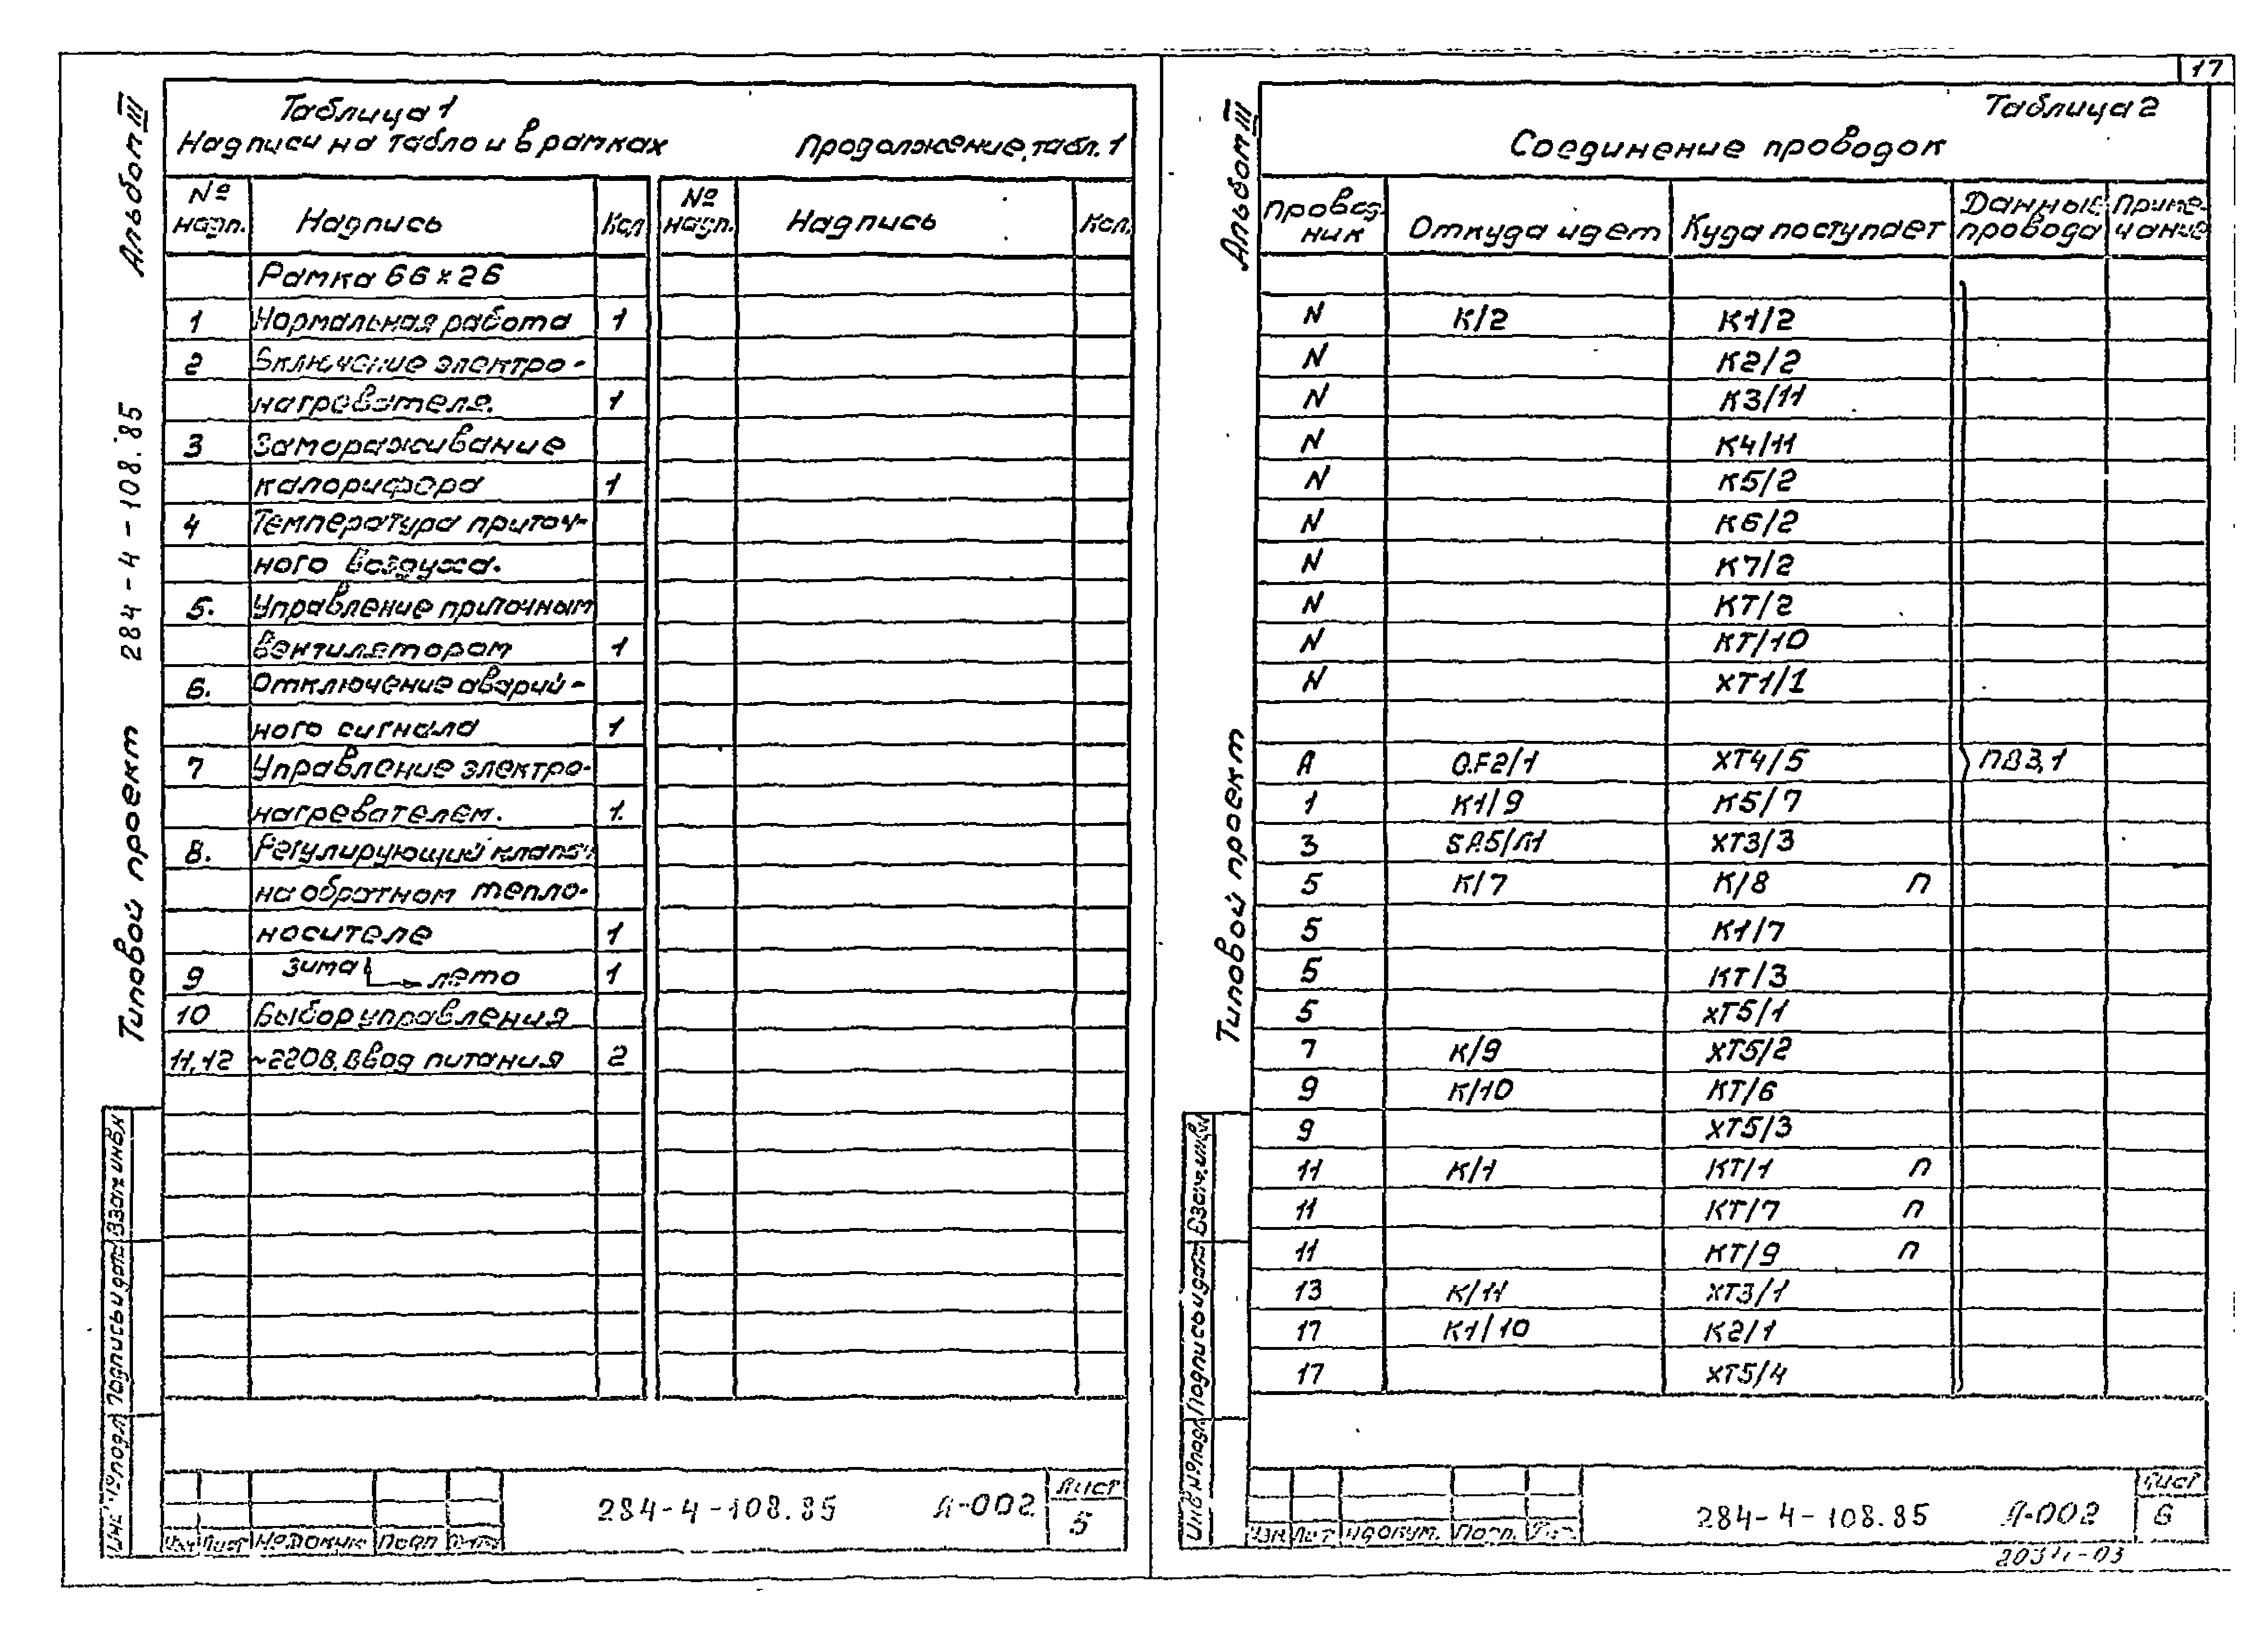 Альбом III
284-4-108.85
Типовой проект
Таблица 1
Надписи на табло и в рамках
Продолжение, табл. 1
№ надп. Надпись Кол № надп. Надпись Кол.
Рамка 66×26
1 Нормальная работа 1
2 Включение электро-
нагревателя. 1
3 Замораживание
калорифера 1
4 Температура приточ-
ного воздуха.
5. Управление приточным
вентилятором 1
6. Отключение аварий-
ного сигнала 1
7 Управление электро-
нагревателем. 1.
8. Регулирующий клапан
на обратном тепло-
носителе 1
9 Зима лето 1
10 Выбор управления
11,12 ~220В, ввод питания 2
Взам инв №
Подпись и дата
Инв № подл
Лист № докум Подп
284-4-108.85 А-002
Лист
5
17
Альбом III
Типовой проект
Таблица 2
Соединение проводок
Провод-ник Откуда идет Куда поступает Данные провода Приме-чание
N К/2 К1/2
N К2/2
N К3/11
N К4/11
N К5/2
N К6/2
N К7/2
N КТ/2
N КТ/10
N ХТ1/1
А QF2/1 ХТ4/5 ПВ3,1
1 К1/9 К5/7
3 SA5/Л1 ХТ3/3
5 К/7 К/8 п
5 К1/7
5 КТ/3
5 ХТ5/1
7 К/9 ХТ5/2
9 К/10 КТ/6
9 ХТ5/3
11 К/1 КТ/1 п
11 КТ/7 п
11 КТ/9 п
13 К/11 ХТ3/1
17 К1/10 К2/1
17 ХТ5/4
Взам. инв №
Подпись и дата
Инв № подл
Изм Лист № докум. Подп.
284-4-108.85 А-002
Лист
6